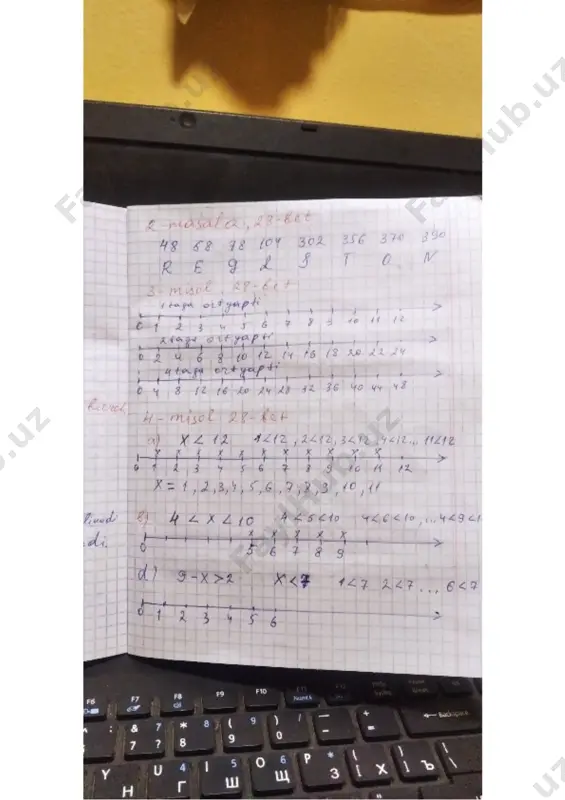 2-masala, 28-bet
48 68 78 104 302 356 370 390
R E g I S T O N
3-misol, 28-bet
1 taga ortyapti
0 1 2 3 4 5 6 7 8 9 10 11 12
2 taga ortyapti
0 2 4 6 8 10 12 14 16 18 20 22 24
4 taga ortyapti
0 4 8 12 16 20 24 28 32 36 40 44 48
4-misol 28-bet
a) x < 12 1<12, 2<12, 3<12, 4<12... 11<12
x x x x x x x x x x x
0 1 2 3 4 5 6 7 8 9 10 11 12
x = 1, 2, 3, 4, 5, 6, 7, 8, 9, 10, 11
b) 4 < x < 10 4<5<10 4<6<10, ...4<9<1
x x x x x
0 5 6 7 8 9
d) 9-x>2 x<7 1<7 2<7 ... 6<7
0 1 2 3 4 5 6
di.
F6 F7 F8 F9 F10
& 7 * 8 ( 9 ) 0 - + =
Backspace
Y U 4 I 5 O 6 P { [ } ]
Н Г Ш Щ З Х Ъ
FaylHub.uz